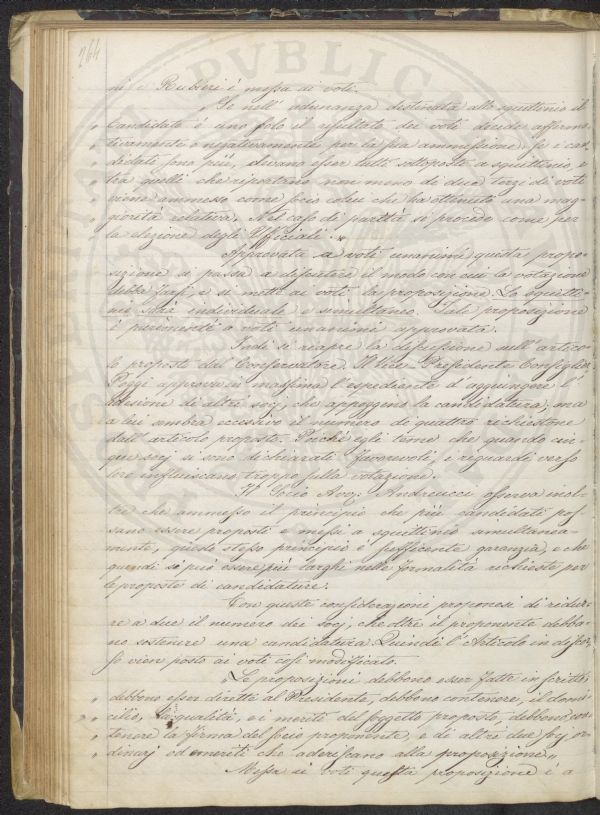 264
ni e Rubieri è messa ai voti.
„ Se nell' adunanza destinata allo squittinio il
„ Candidato è uno solo il resultato dei voti decide afferma
„ tivamente o negativamente per la sua ammissione. Se i can
„ didati sono più, devono esser tutti sottoposti a squittinio, e
„ tra quelli che riportino non meno di due terzi di voti
„ viene ammesso come socio colui che ha ottenuto una mag
„ giorità relativa. Nel caso di parità si procede come per
„ la elezione degli Ufficiali.
Approvata a voti unanimi questa propo=
sizione si passa a discutere il modo con cui la votazione
debba farsi, e si mette ai voti la proposizione. Lo squitti=
nio sarà individuale e simultaneo. Tale proposizione
è parimenti a voti unanimi approvata.
Indi si riapre la discussione sull' artico=
lo proposto dal Conservatore. Il Vice-Presidente Consiglier
Poggi approva in massima l'espediente d'aggiungere l'
adesione di altri socj, che appoggino la candidatura, ma
a lui sembra eccessivo il numero di quattro richiestone
dall' articolo proposto. Poichè egli teme che quando cin=
que socj si sono dichiarati favorevoli i riguardi verso
loro influiscano troppo sulla votazione.
Il Socio Avv. Andreucci osserva inol=
tre che ammesso il principio che più candidati pos
sano essere proposti e messi a squittinio simultanea=
mente, questo stesso principio è sufficente garanzia, e che
quindi si può essere più larghi nelle formalità richieste per
le proposte di candidature.
Con queste considerazioni proponesi di ridur=
re a due il numero dei socj, che oltre il proponente debba=
no sostenere una candidatura. Quindi l'Articolo in discor
so vien posto ai voti così modificato.
„ Le proposizioni debbono esser fatte in scritto,
„ debbono esser dirette al Presidente, debbono contenere, il domi
„ cilio, la qualità, e i meriti del soggetto proposto, debbono con
„ tenere la firma del socio proponente, e di altri due socj or
„ dinarj od emeriti che aderiscano alla proposizione „
Messa ai voti questa proposizione è a